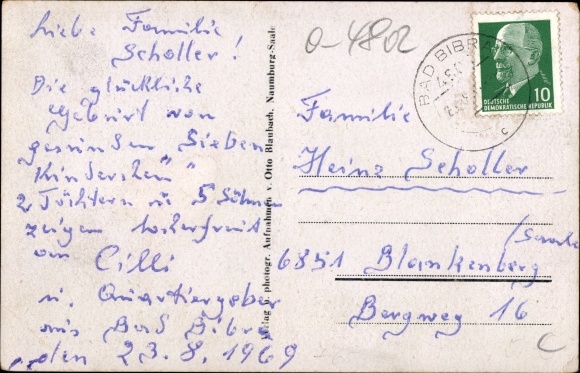 Liebe Familie
Scholler!
Die glückliche
Geburt von
gesunden Sieben
Kinderchen"
2 Töchtern u 5 Söhnen
zeigen hocherfreut
an Cilli
u. Quartiergeber
aus Bad Bibra
, den 23.8.1969
Verlag u. photogr. Aufnahmen v. Otto Blaubach, Naumburg-Saale
0-4802
BAD BIBRA
c
10
DEUTSCHE
DEMOKRATISCHE REPUBLIK
Familie
Heinz Scholler
6851 Blankenberg
(Saale
Bergweg 16